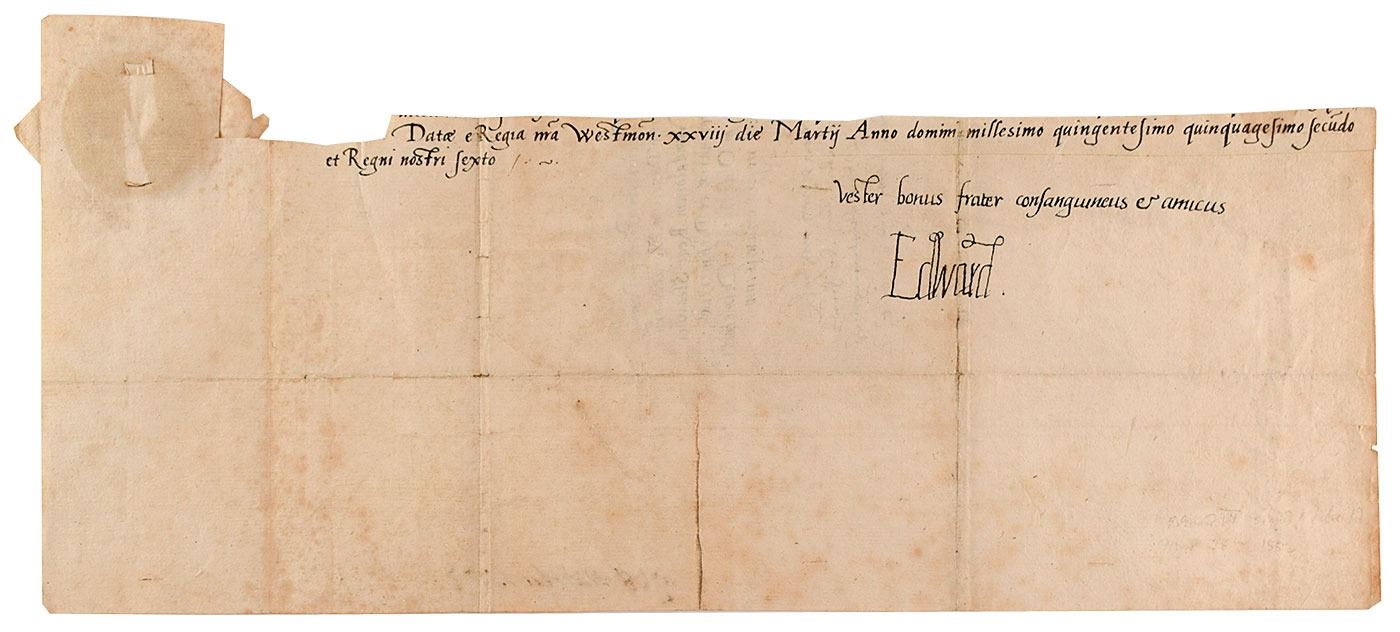 Datæ e Regia nr̃a Westmon. xxviij die Martij Anno domini millesimo quingentesimo quinquagesimo secũdo
et Regni nostri sexto
Vester bonus frater consanguineus & amicus
Edward.